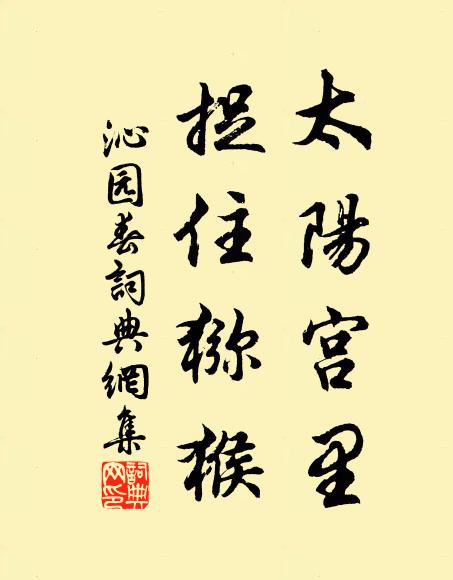 太陽宫里
捉住猕猴
沁园春詞典網集
詞典网印